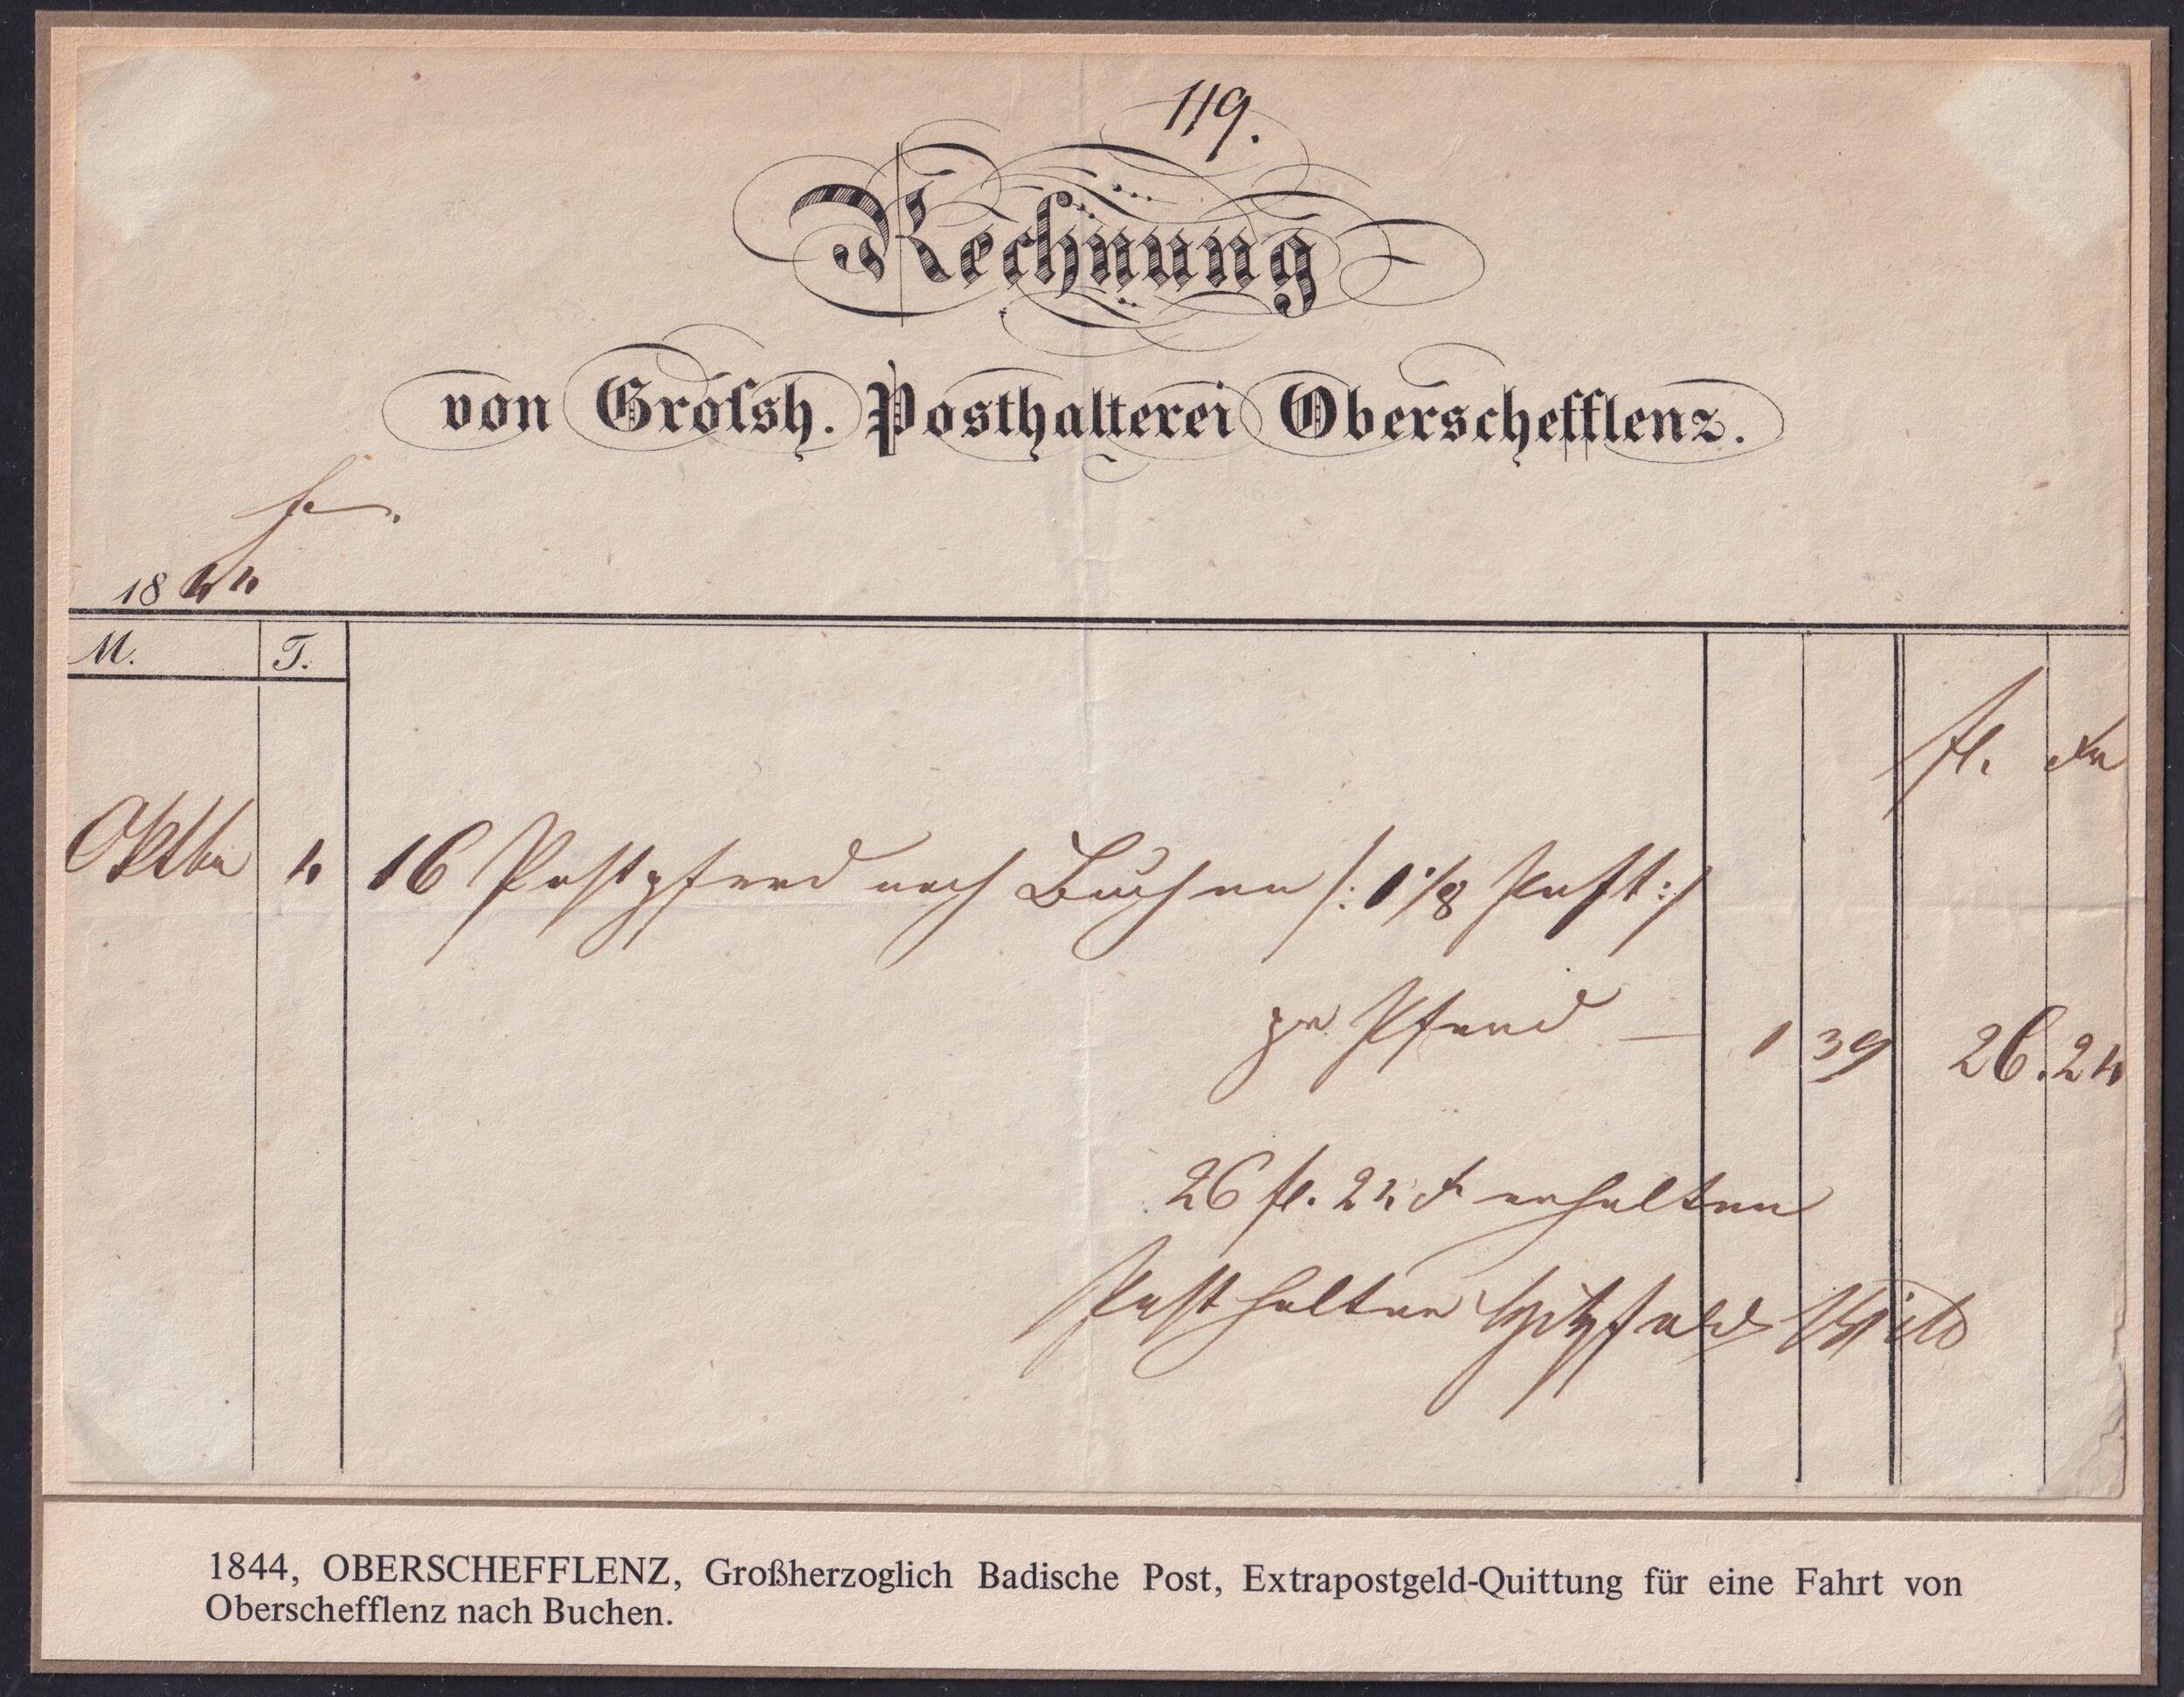 119.
Rechnung
von Grofsh. Posthalterei Oberschefflenz.
1844
M. T.
fl. xr
Oktbr 4 16 Postpferd nach Buchen /: 1 1/8 Post :/
pr Pferd — 1 39 26. 24
26 fl. 24 x erhalten
Posthalter
1844, OBERSCHEFFLENZ, Großherzoglich Badische Post, Extrapostgeld-Quittung für eine Fahrt von
Oberschefflenz nach Buchen.